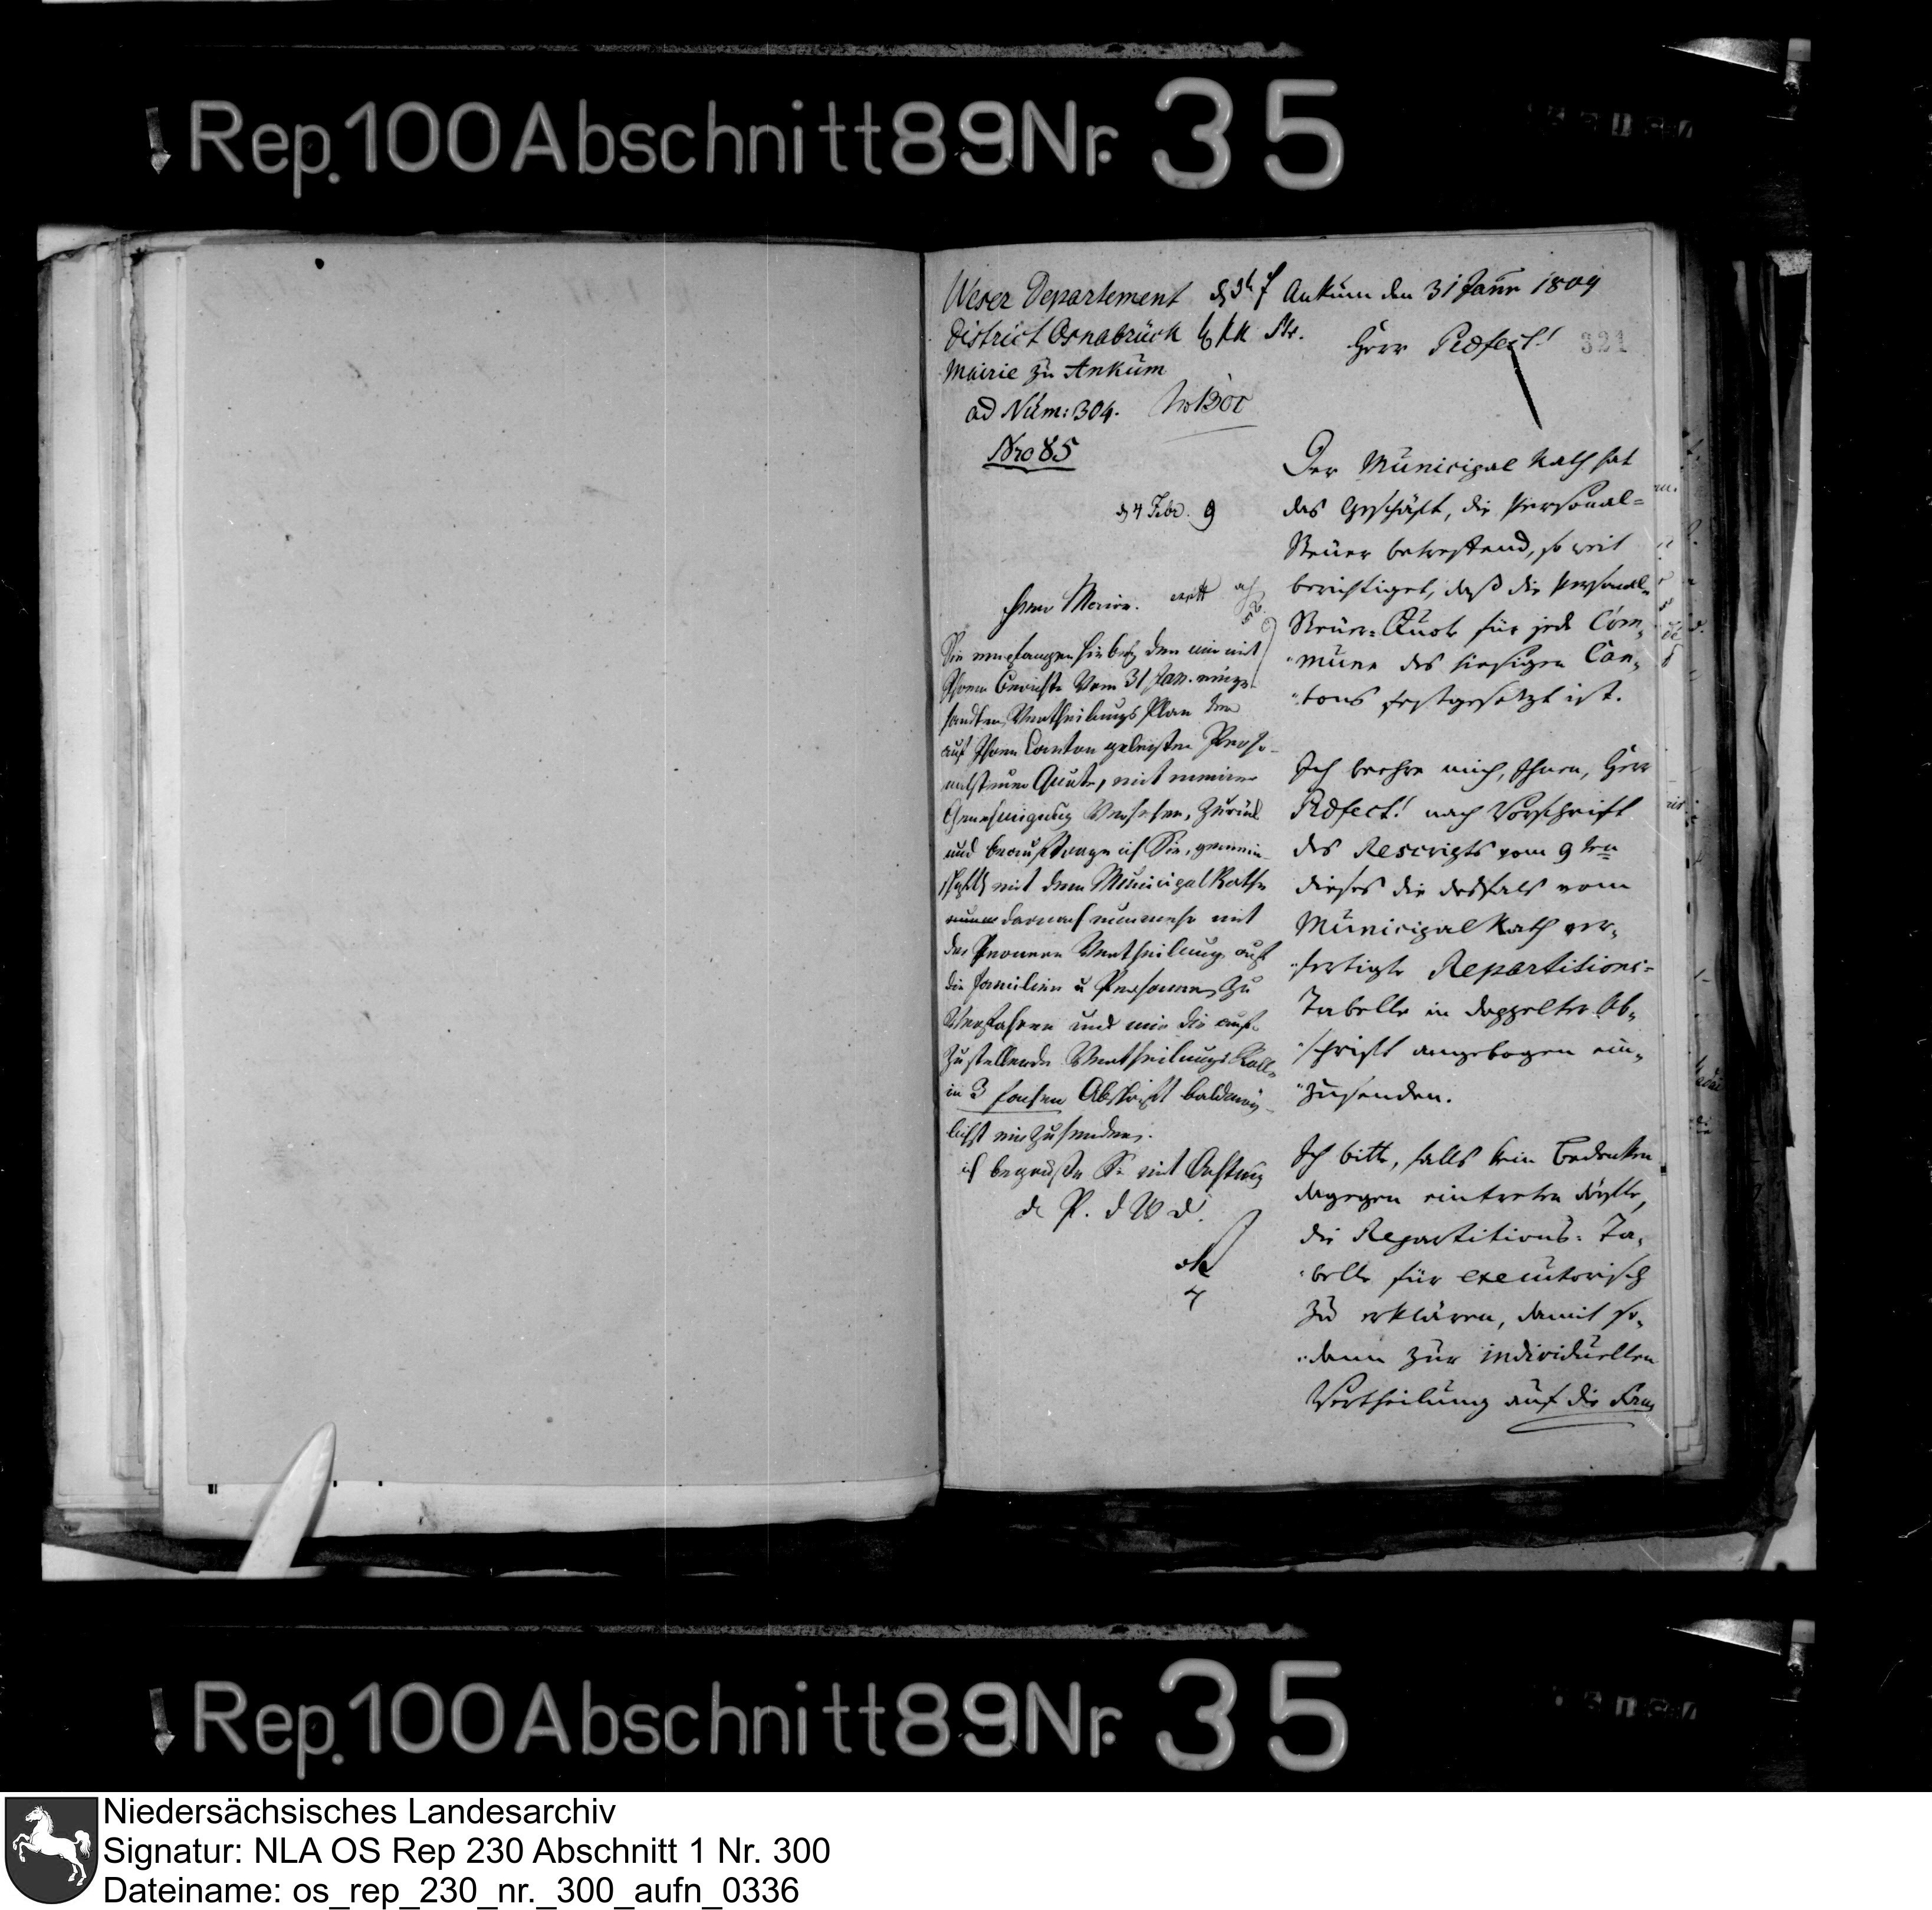 Rep. 100 Abschnitt 89 Nr. 35
Weser Departement
District Osnabrück
Mairie zu Ankum
ad Num: 304.
Nro 85
Ankum den 31 Janr 1809
Herr Præfect!
321
Der Municipal Rath hat
das Geschäft, die Personal-
Steuer betreffend, so weit
berichtiget, daß die Personal-
Steuer-Quote für jede Com-
mune des hiesigen Can-
tons festgesetzt ist.
Ich beehre mich, Ihnen, Herr
Præfect! nach Vorschrift
des Rescripts vom 9ten
dieses die desfals vom
Municipal Rath ver-
fertigte Repartitions-
Tabelle in doppelter Ab-
schrift angebogen ein-
zusenden.
Ich bitte, falls kein Bedenken
dagegen eintreten dürfte,
die Repartitions-Ta-
belle für executorisch
zu erklären, damit so-
dann zur individuellen
Vertheilung auf die
4 Febr. 9
Herr Maire.
Sie empfangen hiebey den mir mit
Ihrem Berichte vom 31 Jan. einge-
sandten Vertheilungs Plan der
auf Ihren Canton gelegten Perso-
nalsteuer Quote, mit meiner
Genehmigung versehen, zurück
und beauftrage ich Sie, gemein-
schaftl mit dem Municipal Rathe
darnach nunmehr mit
der Vertheilung auf
die Familien u Personen zu
verfahren und mir die auf-
zustellende Vertheilungs Rolle
in 3 facher Abschrift baldmög-
lichst einzusenden.
ich begrüße Sie mit Achtung
d. P. d W d.
4
Rep. 100 Abschnitt 89 Nr. 35
Niedersächsisches Landesarchiv
Signatur: NLA OS Rep 230 Abschnitt 1 Nr. 300
Dateiname: os_rep_230_nr._300_aufn_0336